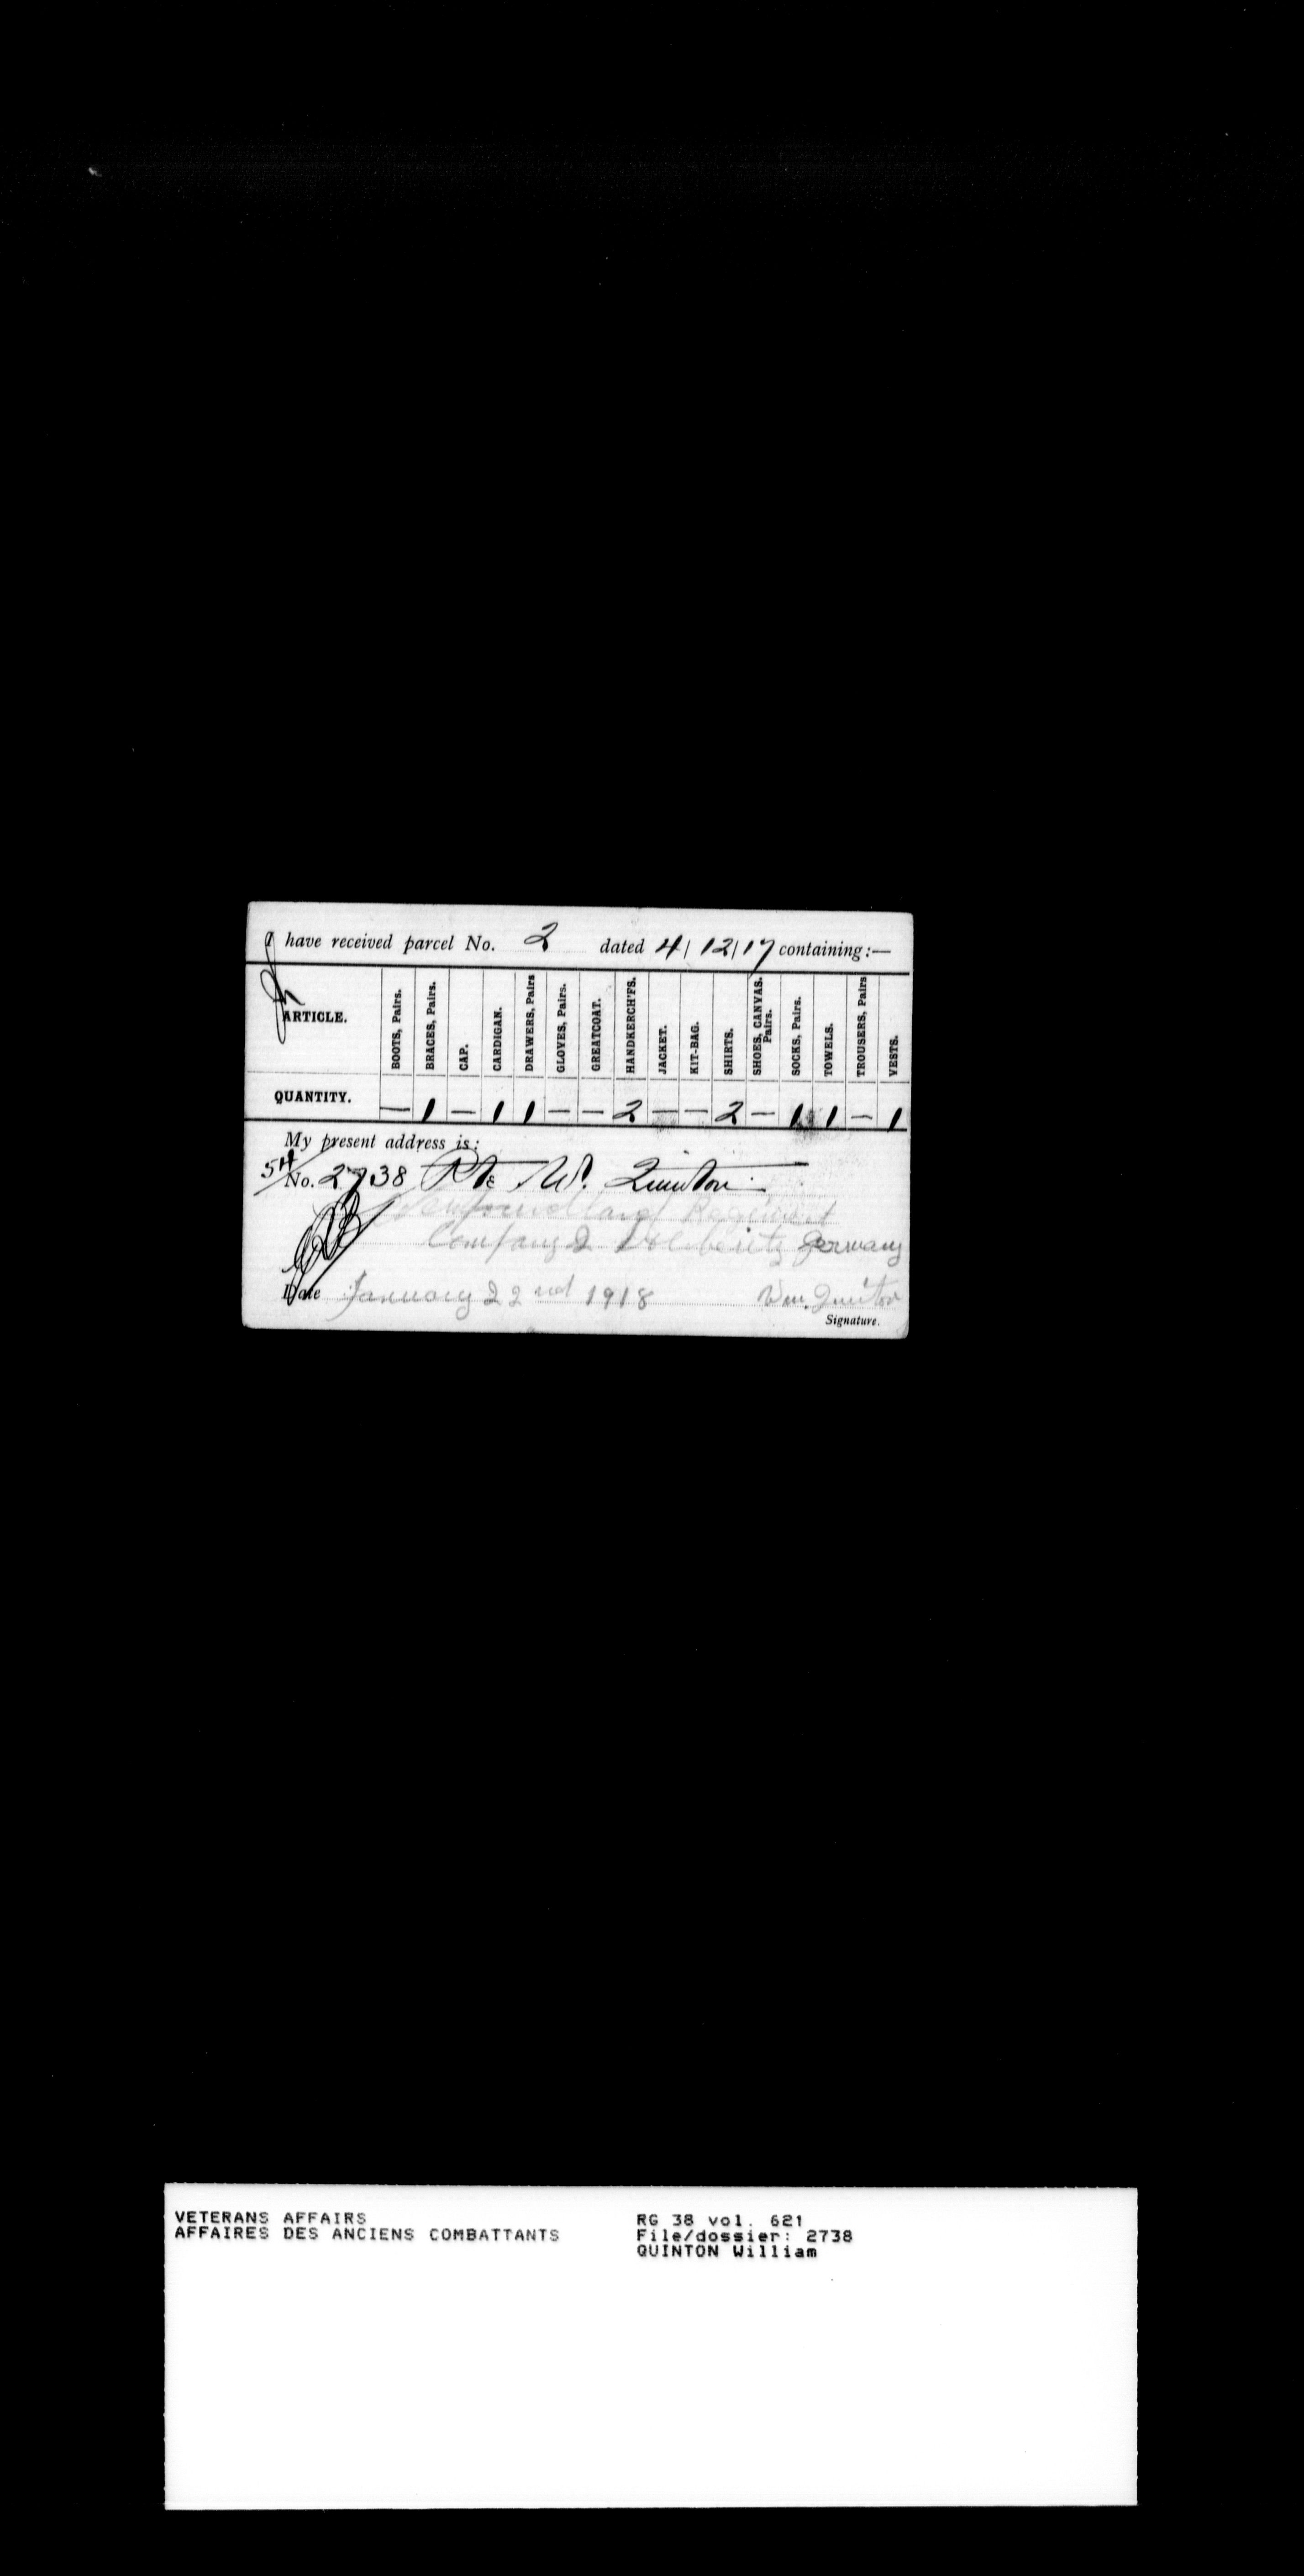 I have received parcel No. 2 dated 4/12/17 containing:—
ARTICLE. BOOTS, Pairs. BRACES, Pairs. CAP. CARDIGAN. DRAWERS, Pairs GLOVES, Pairs. GREATCOAT. HANDKERCH'FS. JACKET. KIT-BAG. SHIRTS. SHOES, CANVAS. Pairs. SOCKS, Pairs. TOWELS. TROUSERS, Pairs VESTS.
QUANTITY. — 1 — 1 1 — — 2 — — 2 — 1 1 — 1
My present address is:
54
No. 2738 Pte W. Quinton
Newfoundland Regiment
Company 2 Germany
Date January 22nd 1918 Wm. Quinton
Signature.
VETERANS AFFAIRS RG 38 vol. 621
AFFAIRES DES ANCIENS COMBATTANTS File/dossier: 2738
QUINTON William